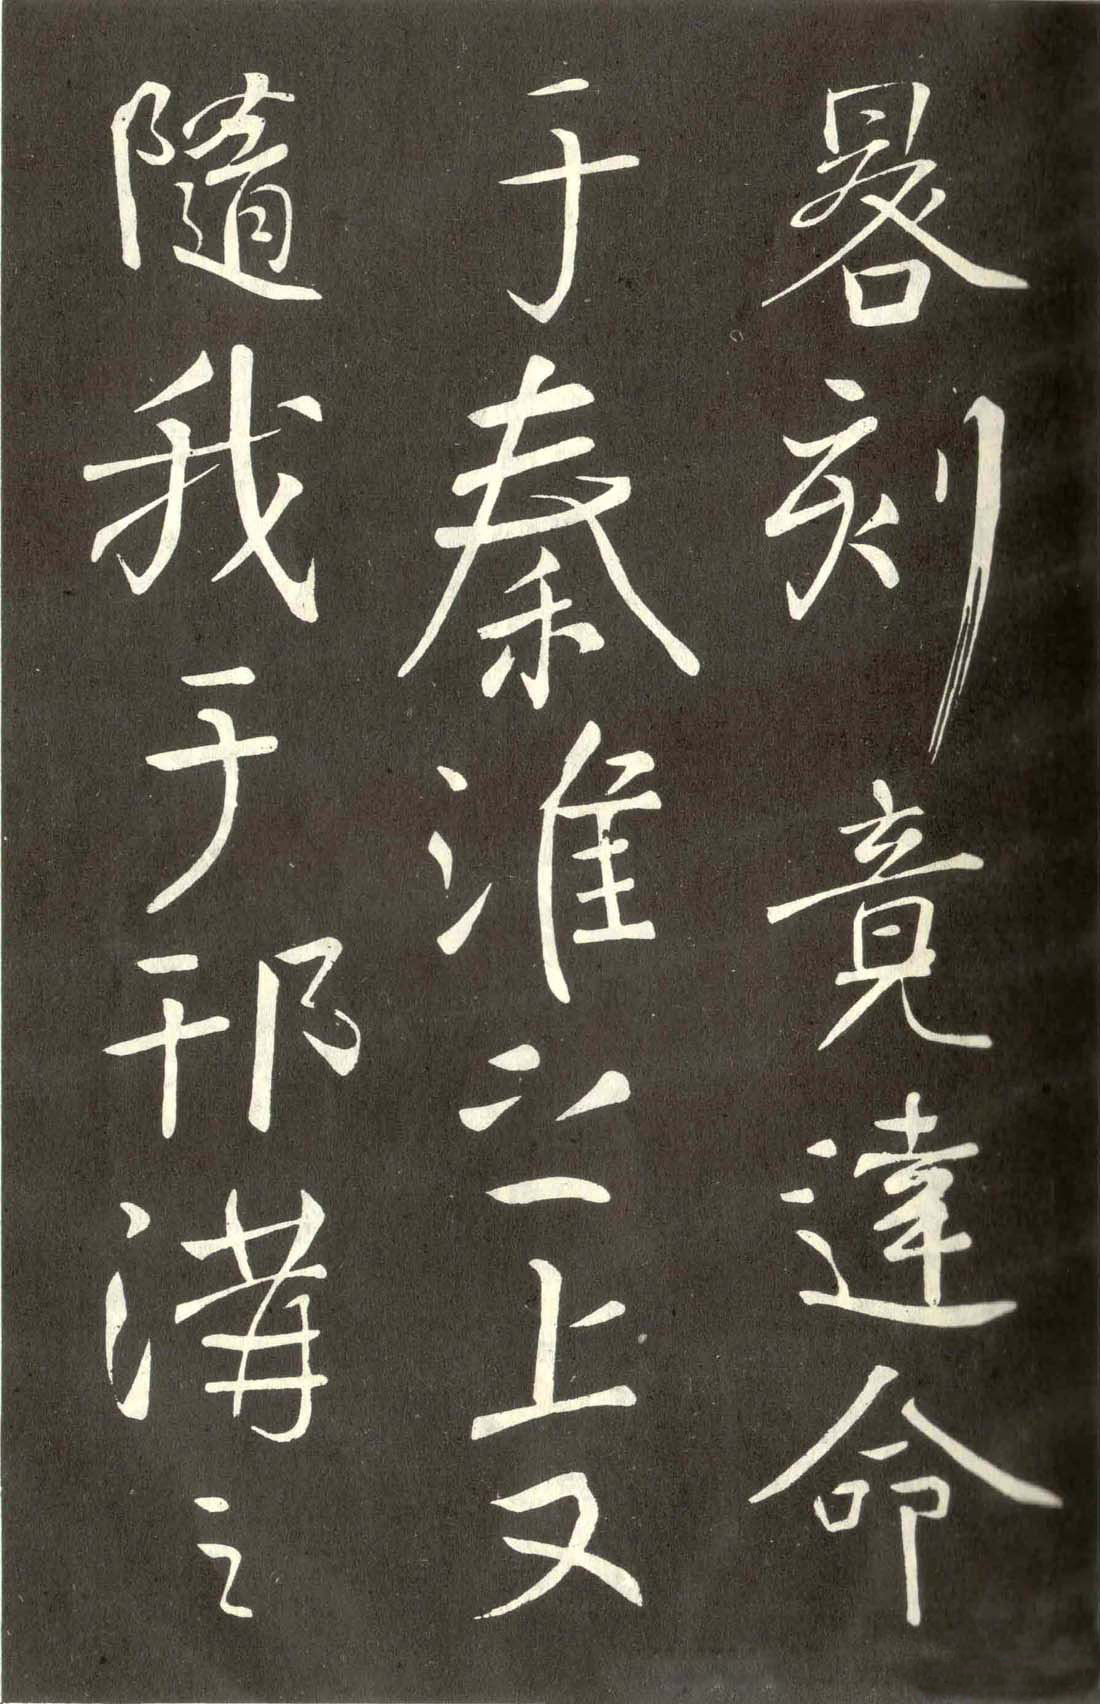 晷刻竟達命
于秦淮之上又
隨我于邗溝之